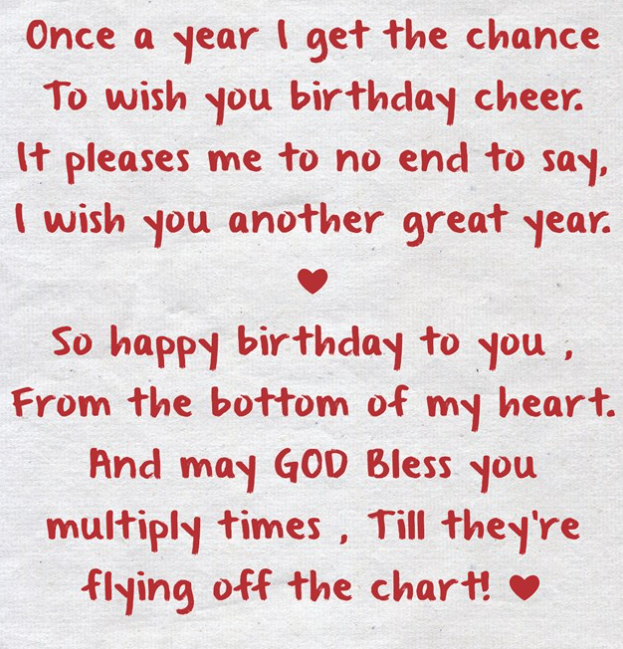 Once a year I get the chance
To wish you birthday cheer.
It pleases me to no end to say,
I wish you another great year.
♥
So happy birthday to you ,
From the bottom of my heart.
And may GOD Bless you
multiply times , Till they're
flying off the chart! ♥